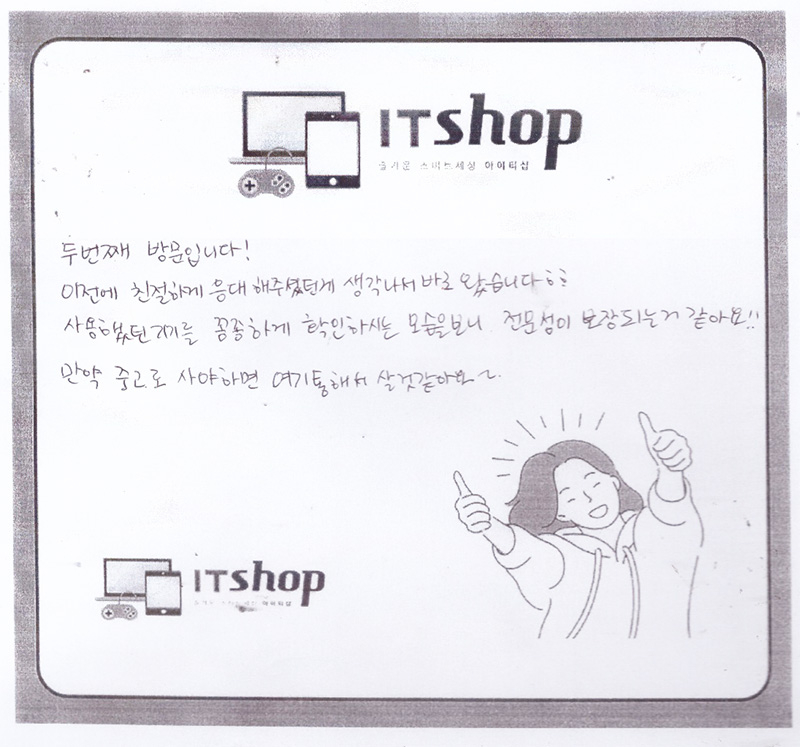 ITshop
즐거운 스마트세상 아이티샵
두번째 방문입니다!
이전에 친절하게 응대 해주셨던게 생각나서 바로 왔습니다ㅎㅎ
사용했던기기를 꼼꼼하게 확인하시는 모습을보니 전문성이 보장되는거 같아요!!
만약 중고로 사야하면 여기통해서 살것같아요~
ITshop
즐거운 스마트세상 아이티샵